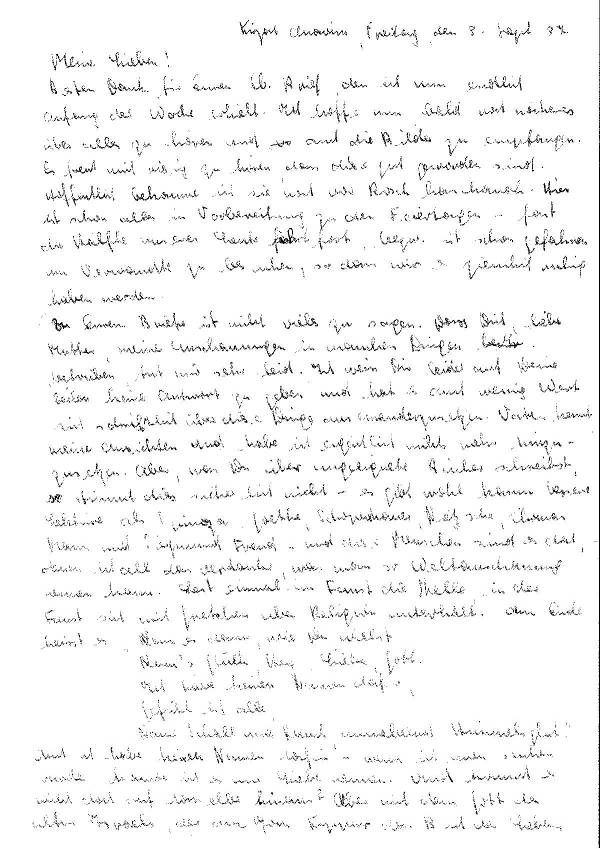 Kirjat Anavim, Freitag, den 3. Sept. 37.
Meine Lieben!
Besten Dank für Euren lb. Brief, den ich nun endlich
anfang der Woche erhielt. Ich hoffe nun bald noch näheres
über alles zu hören und so auch die Bilder zu empfangen.
Es freut mich riesig zu hören, dass diese gut geworden sind.
Hoffentlich bekomme ich sie noch vor Rosch haschanah. Hier
ist schon alles in Vorbereitung zu den Feiertagen - fast
die Hälfte unserer Leute fährt fort, bezw. ist schon gefahren
um Verwandte zu besuchen, so dass wir es ziemlich ruhig
haben werden.
Zu Eurem Briefe ist nicht viel zu sagen. Dass Dich, liebe
Mutter, meine Anschauungen in manchen Dingen
betrüben, tut mir sehr leid. Ich weiss Dir leider auf Deine
Zeilen keine Antwort zu geben und hat es auch wenig Wert
sich schriftlich über diese Dinge auseinanderzusetzen. Vater kennt
meine Ansichten und habe ich eigentlich nichts mehr hinzu-
zusetzen. Aber, was Du über ungeeignete Bücher schreibst,
so stimmt dies sicherlich nicht - es gibt wohl kaum bessere
als Spinoza, Goethe, Schopenhauer, Nietzsche, Thomas
Mann und Sigmund Freud - und diese Menschen sind es,
denen ich all das verdanke, was man so Weltanschauung
nennen kann. Lest einmal im Faust die Stelle, in der
Faust sich mit Gretchen über Religion unterhält. Am Ende
heisst es: Nenn es dann, wie Du willst
Nenn's Glück! Herz! Liebe! Gott!
Ich habe keinen Namen dafür
Gefühl ist alles
Name Schall und Rauch umnebelnd Himmelsglut."
Auch ich habe keinen Namen dafür - wenn ich einen suchen
würde, könnte ich es nur Liebe nennen. Und kommt es
nicht doch auf dasselbe hinaus? Aber mit dem Gott des
alten Israels, der